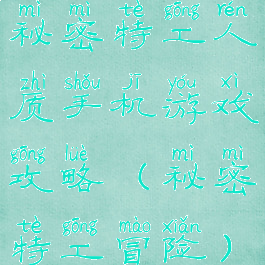 mì mì tè gōng rén
秘密特工人
zhì shǒu jī yóu xì
质手机游戏
gōng luè mì mì
攻略（秘密
tè gōng mào xiǎn
特工冒险）